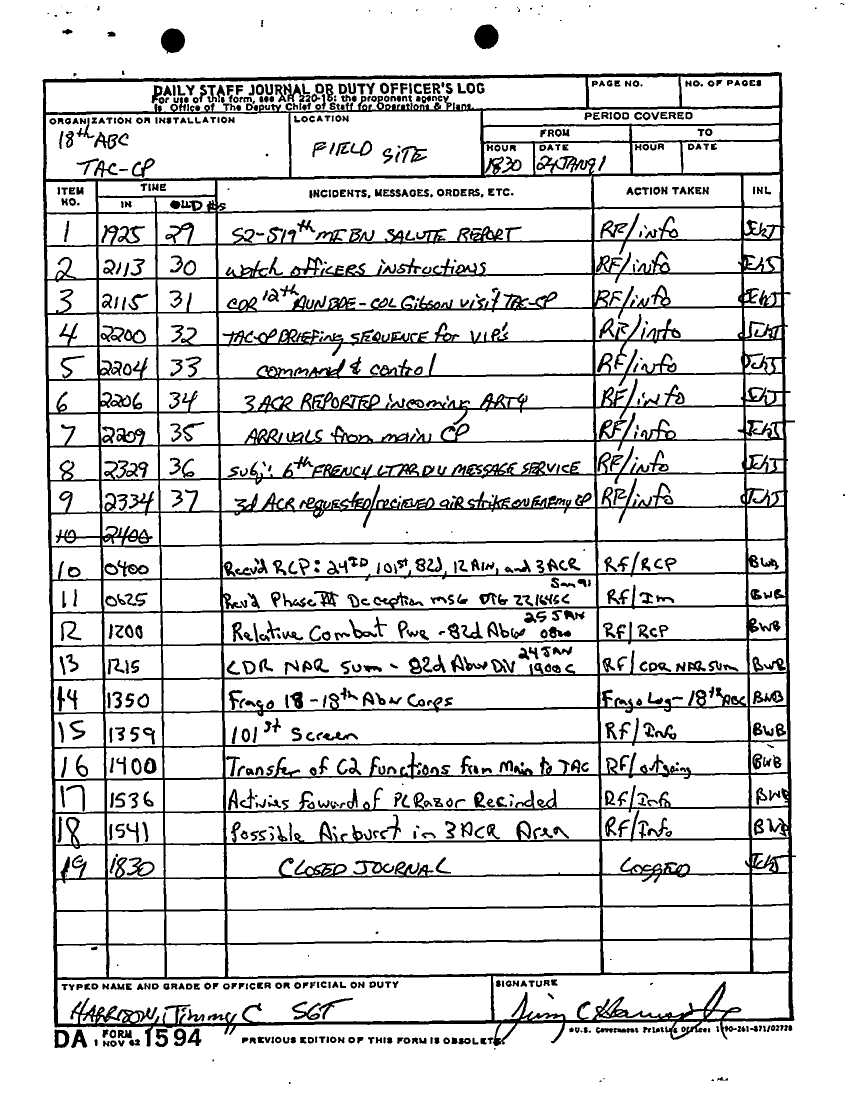 DAILY STAFF JOURNAL OR DUTY OFFICER'S LOG
For use of this form, see AR 220-15; the proponent agency
is Office of The Deputy Chief of Staff for Operations & Plans.
PAGE NO.
NO. OF PAGES
ORGANIZATION OR INSTALLATION
18th ABC
TAC-CP
LOCATION
FIELD SITE
PERIOD COVERED
FROM TO
HOUR DATE HOUR DATE
1830 24JAN91
ITEM NO. TIME INCIDENTS, MESSAGES, ORDERS, ETC. ACTION TAKEN INL
IN OLD #s
1 1925 29 S2-519th MI BN SALUTE REPORT RF/info
2 2113 30 watch officers instructions RF/info
3 2115 31 CDR 12th AVN BDE - COL Gibson visit TAC-CP RF/info
4 2200 32 TAC-CP BRIEFING SEQUENCE for VIP's RF/info
5 2204 33 command & control RF/info
6 2206 34 3 ACR REPORTED incoming ARTY RF/info
7 2209 35 ARRIVALS from main CP RF/info
8 2329 36 subj: 6th FRENCH LT AR DIV MESSAGE SERVICE RF/info
9 2334 37 3d ACR requested/recieved air strike on enemy CP RF/info
10 2400
10 0400 Recv'd RCP: 24ID, 101st, 82d, 12 AVN, and 3 ACR RF/RCP BWB
11 0625 Rev'd Phase III Deception msg DTG 221646C Jan 91 RF/Im BWB
12 1200 Relative Combat Pwr - 82d Abw 25 JAN 0800 RF/RCP BWB
13 1215 CDR NAR SUM - 82d Abw DIV 24 JAN 1900C RF/CDR NAR SUM BWB
14 1350 Frago 18 - 18th Abw Corps Frago Log - 18th ABC BWB
15 1359 101st Screen RF/Info BWB
16 1400 Transfer of C2 functions from Main to TAC RF/outgoing BWB
17 1536 Activies Foward of PL Razor Recinded RF/Info BWB
18 1541 Possible Airburst in 3ACR Area RF/Info BWB
19 1830 CLOSED JOURNAL LOGGED
TYPED NAME AND GRADE OF OFFICER OR OFFICIAL ON DUTY
HARRISON, Jimmy C SGT
SIGNATURE
DA FORM 1 NOV 62 1594
PREVIOUS EDITION OF THIS FORM IS OBSOLETE.
*U.S. Government Printing Office: 1990-261-871/02728